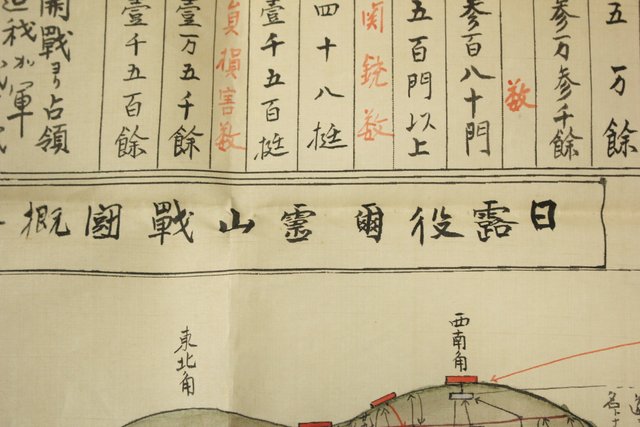 五万余
参万参千餘
数
参百八十門
五百門以上
歯銃数
四十八挺
壹千五百挺
員損害数
壹万五千餘
壹千五百餘
開戰ヨリ占領
我が軍
日露役爾霊山戰圖概
西南角
東北角